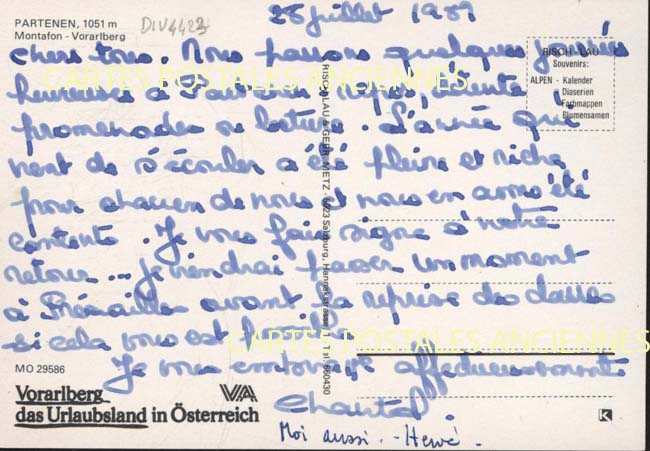 PARTENEN, 1051 m
Montafon - Vorarlberg
DIV4423
28 juillet 1989
chers tous. Nous passons quelques journées
heureuses à Partenen : repos, détente
promenades et lecture. L'année qui
vient de s'écouler a été pleine et riche
pour chacun de nous et nous en avons été
contents. Je vous fais signe à notre
retour... je viendrai passer un moment
à avant la reprise des classes
si cela vous est possible.
Je vous embrasse affectueusement
Chantal
Moi aussi. - Hervé.
RISCH-LAU
Souvenirs:
ALPEN - Kalender
- Diaserien
- Farbmappen
- Blumensamen
RISCH-LAU & GEBR. METZ - 5023 Salzburg, Tel. 660430
MO 29586
Vorarlberg
das Urlaubsland in Österreich
VA
K
CARTES POSTALES ANCIENNES
CARTES POSTALES ANCIENNES